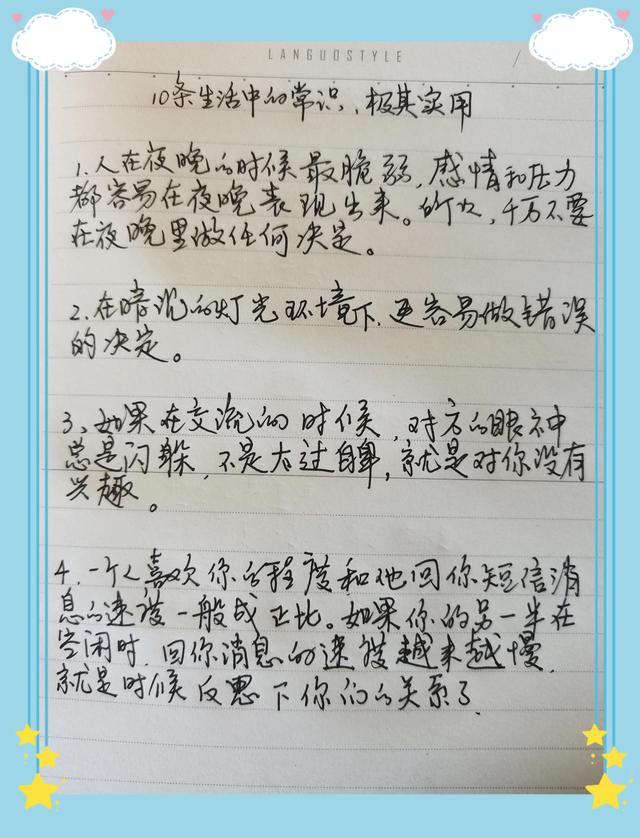 LANGUOSTYLE
10条生活中的常识,极其实用
1.人在夜晚的时候最脆弱,感情和压力
都容易在夜晚表现出来。所以,千万不要
在夜晚里做任何决定。
2.在暗沉的灯光环境下,更容易做错误
的决定。
3、如果在交流的时候,对方的眼神
总是闪躲,不是太过自卑,就是对你没有
兴趣。
4.一个人喜欢你的程度和他回你短信消
息的速度一般成正比。如果你的另一半在
空闲时,回你消息的速度越来越慢,
就是时候反思下你们的关系了.